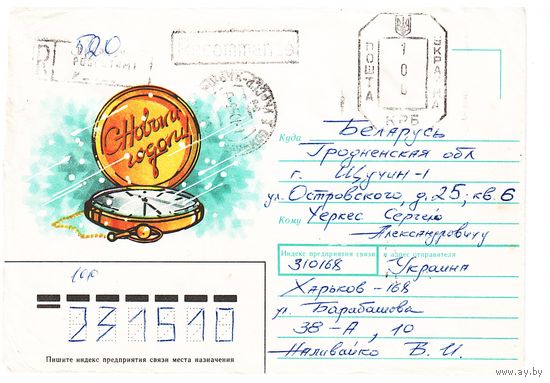 520
R
Recommandé
ПОШТА
100
УКРАЇНА
КРБ
С Новым
годом!
Куда Беларусь
Гродненская обл
г. Щучин-1
ул. Островского, д. 25; кв. 6
Кому Черкес Сергею
Александровичу
Индекс предприятия связи и адрес отправителя
310168 Украина
Харьков-168
ул. Барабашова
38-А, 10
Наливайко В. И.
231510
Пишите индекс предприятия связи места назначения
www.ay.by